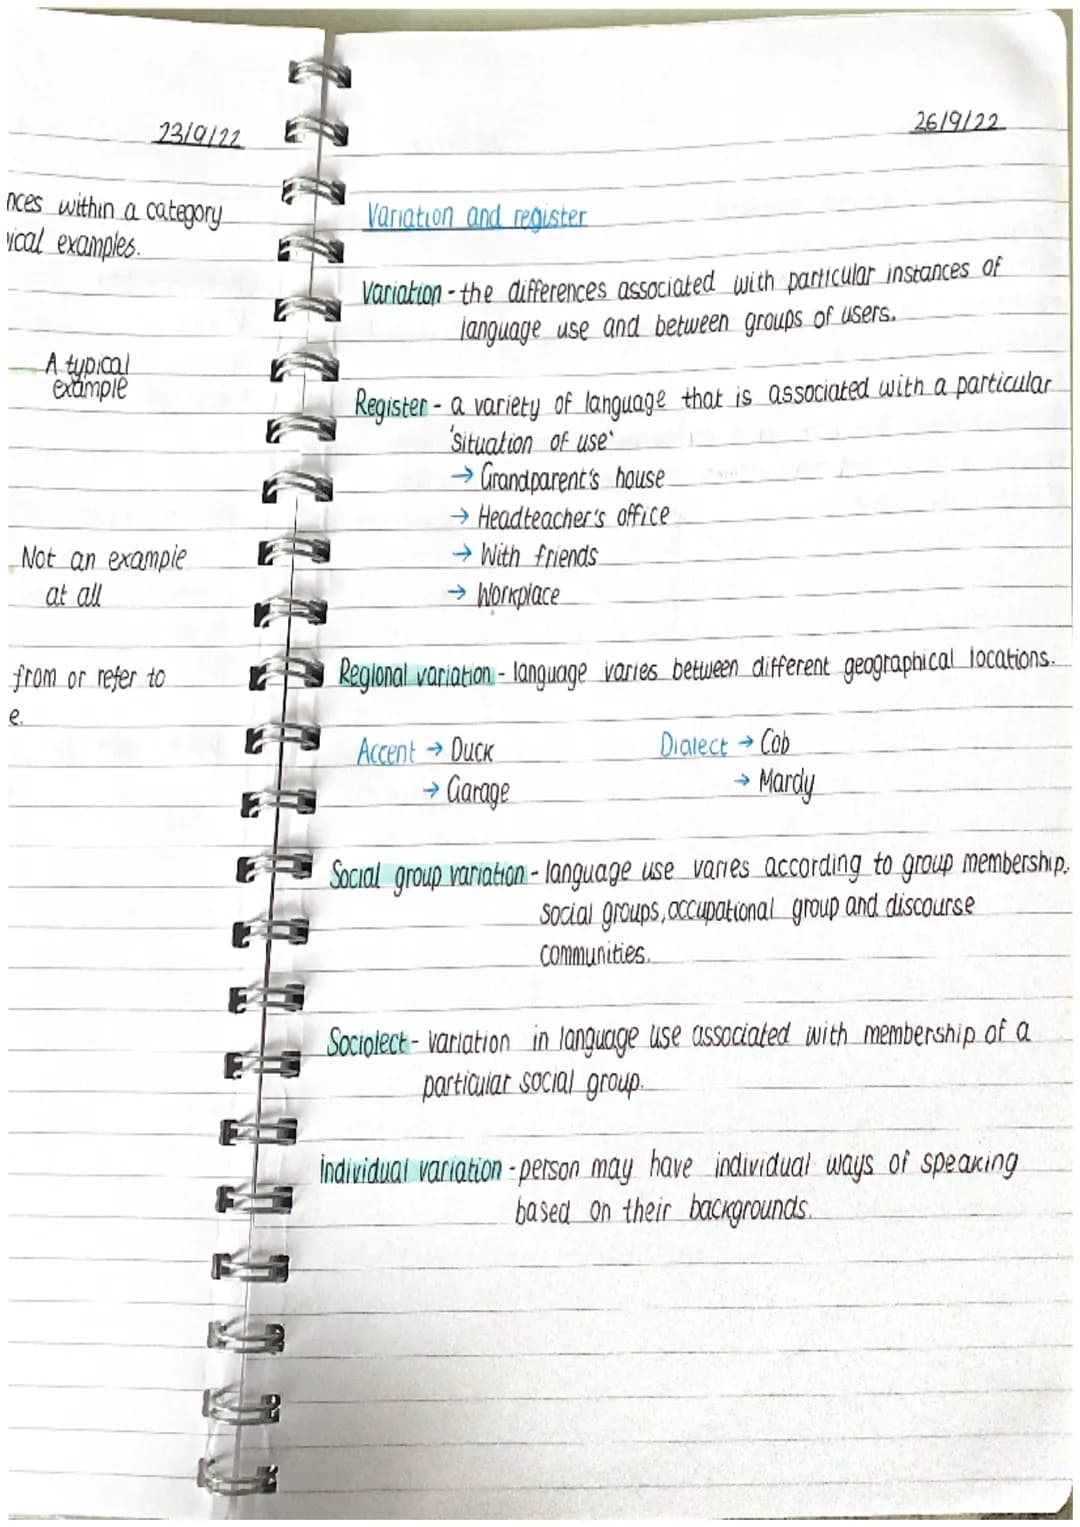 23/9/22
nces within a category
ical examples.
A typical
example
Not an example
at all
from or refer to
e.
26/9/22
Variation and register
Variation - the differences associated with particular instances of
language use and between groups of users.
Register - a variety of language that is associated with a particular
'situation of use'
→ Grandparent's house
→ Headteacher's office
→ With friends
→ Workplace
Regional variation - language varies between different geographical locations.
Accent → Duck Dialect → Cob
→ Garage → Mardy
Social group variation - language use varies according to group membership.
social groups, occupational group and discourse
communities.
Sociolect - variation in language use associated with membership of a
particular social group.
Individual variation - person may have individual ways of speaking
based on their backgrounds.